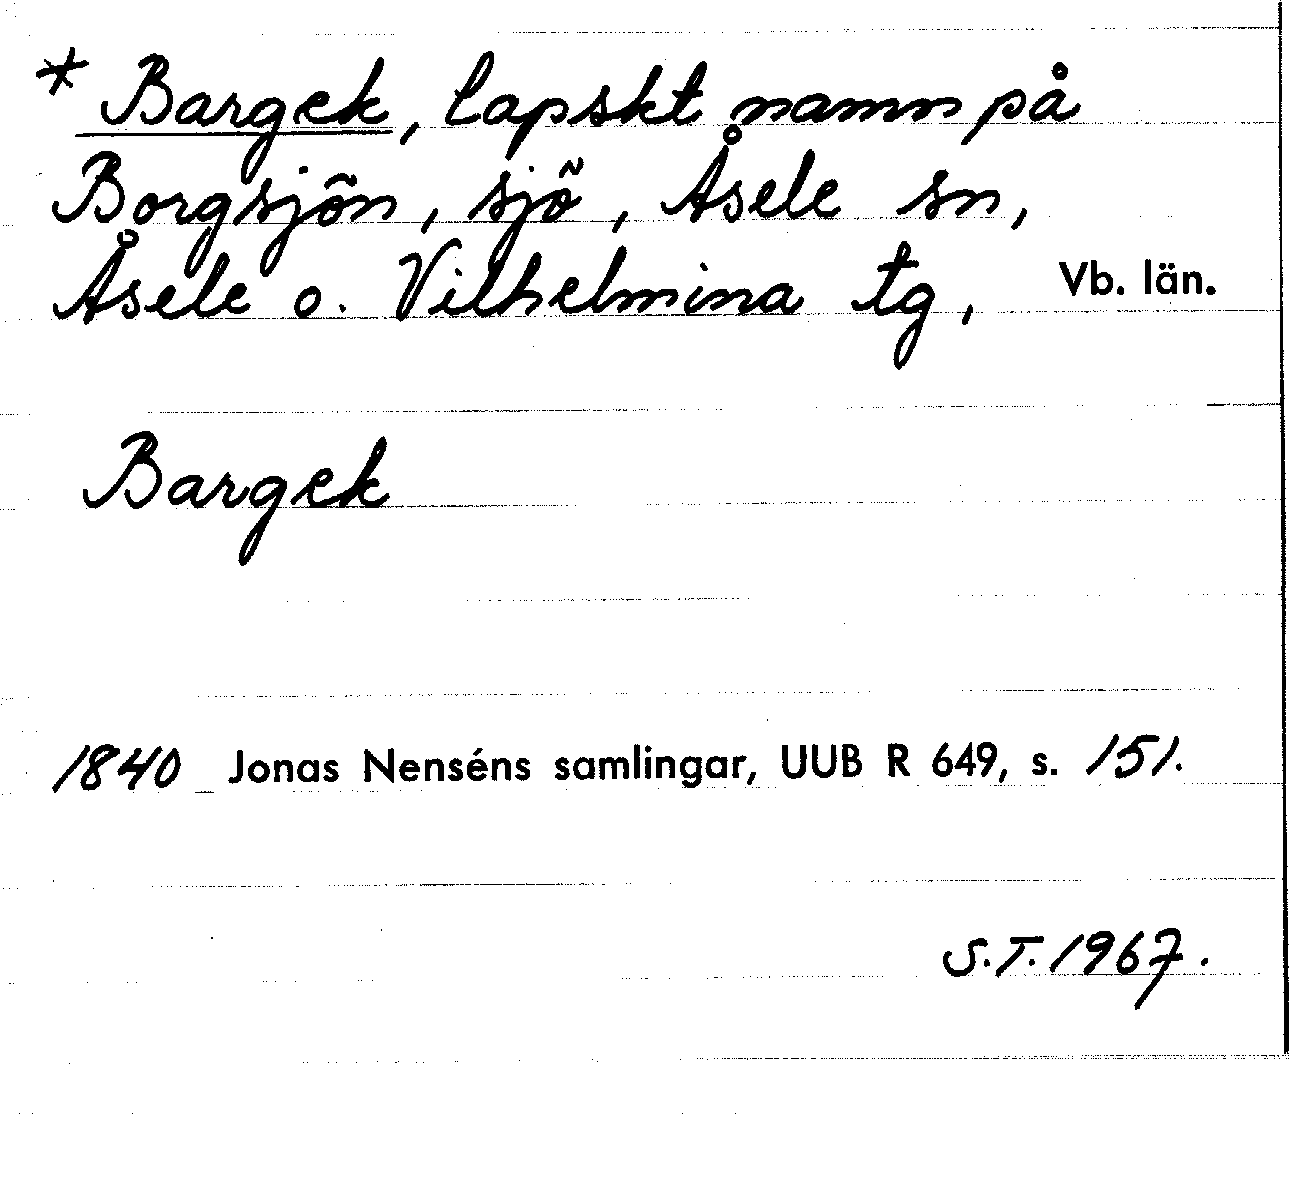 * Bargek, lapskt namn på
Borgsjön, sjö, Åsele sn,
Åsele o. Vilhelmina tg, Vb. län.
Bargek
1840 Jonas Nenséns samlingar, UUB R 649, s. 151.
S.T. 1967.